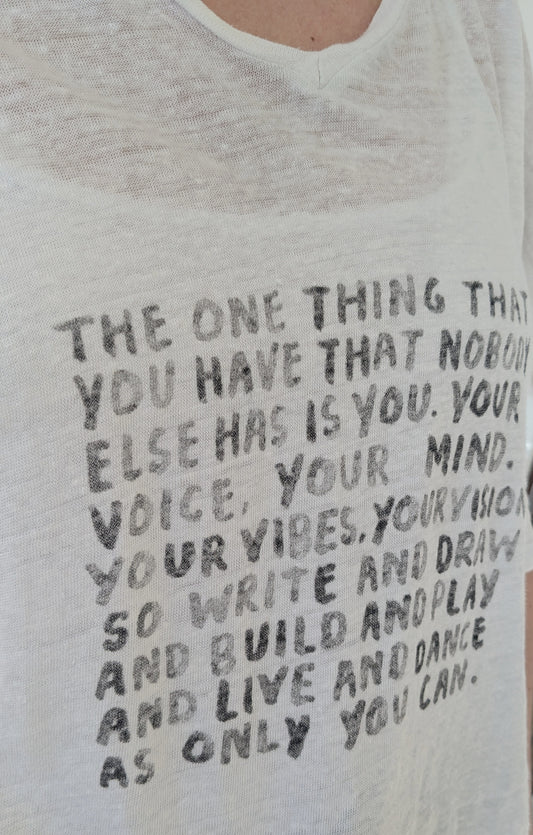 THE ONE THING THAT
YOU HAVE THAT NOBODY
ELSE HAS IS YOU. YOUR
VOICE, YOUR MIND.
YOUR VIBES. YOUR VISION
SO WRITE AND DRAW
AND BUILD AND PLAY
AND LIVE AND DANCE
AS ONLY YOU CAN.